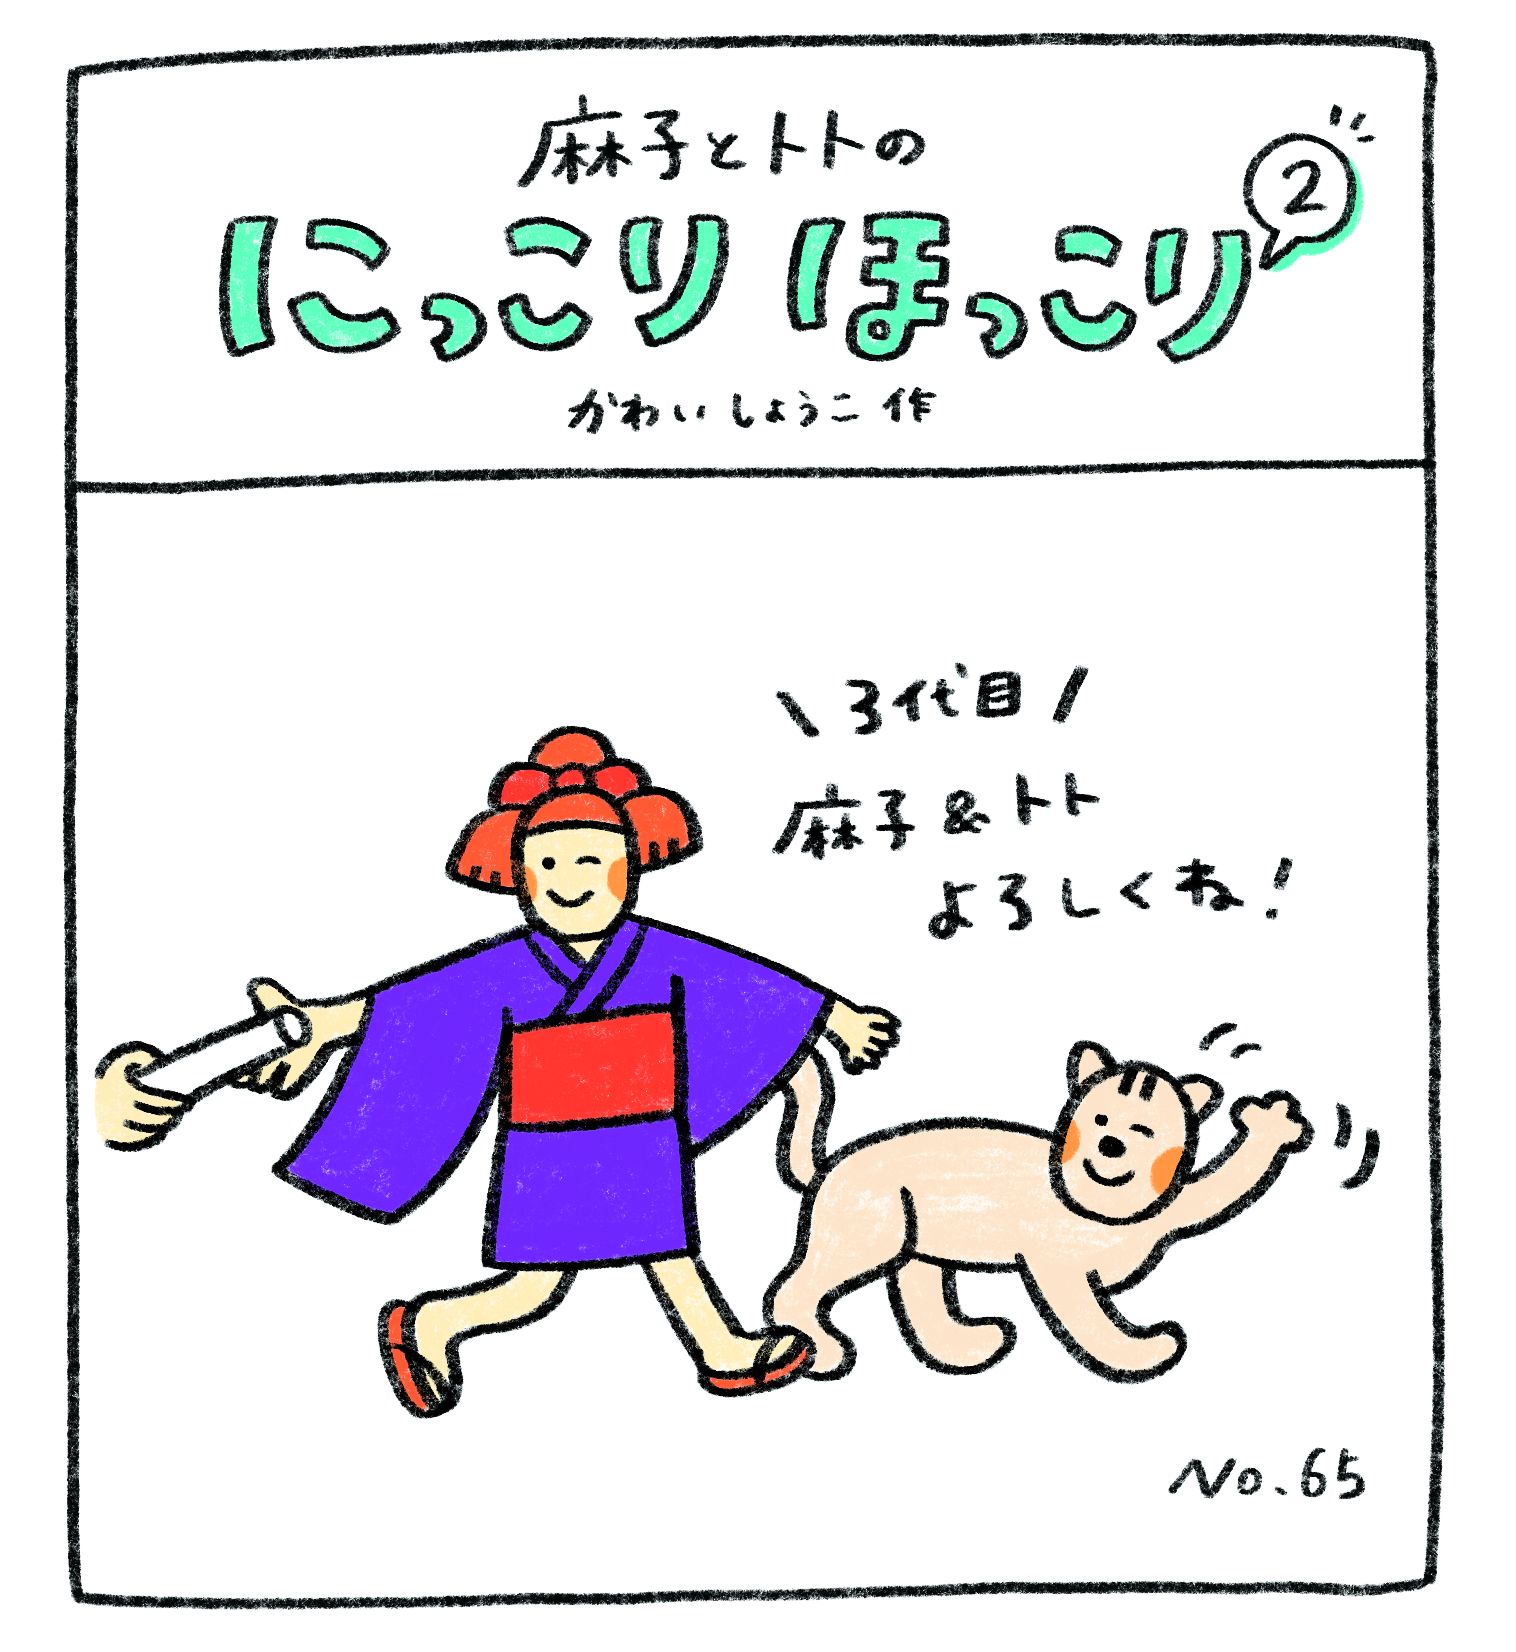 麻子とトトの
にっこり ほっこり
2
かわい しょうこ 作
\ 3代目 /
麻子&トト
よろしくね!
No.65